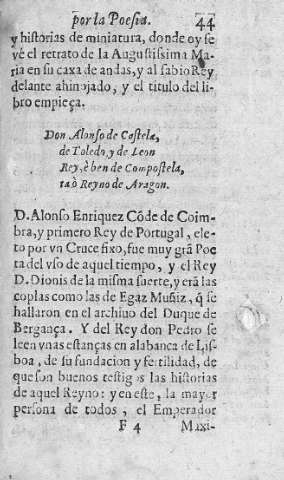 por la Poesia. 44
y historias de miniatura, donde oy se
vé el retrato de la Augustissima Ma-
ria en su caxa de andas, y al sabio Rey
delante ahinojado, y el titulo del li-
bro empieça.
Don Alonso de Castela,
de Toledo, y de Leon
Rey, è ben de Compostela,
ta ò Reyno de Aragon.
D. Alonso Enriquez Cõde de Coim-
bra, y primero Rey de Portugal, ele-
to por vn Crucefixo, fue muy grã Poe
ta del vso de aquel tiempo, y el Rey
D. Dionis de la misma suerte, y erã las
coplas como las de Egaz Muñiz, q̃ se
hallaron en el archiuo del Duque de
Bergança. Y del Rey don Pedro se
leen vnas estanças en alabança de Lis-
boa, de su fundacion y fertilidad, de
que son buenos testigos las historias
de aquel Reyno: y en este, la mayor
persona de todos, el Emperador
F 4 Maxi-